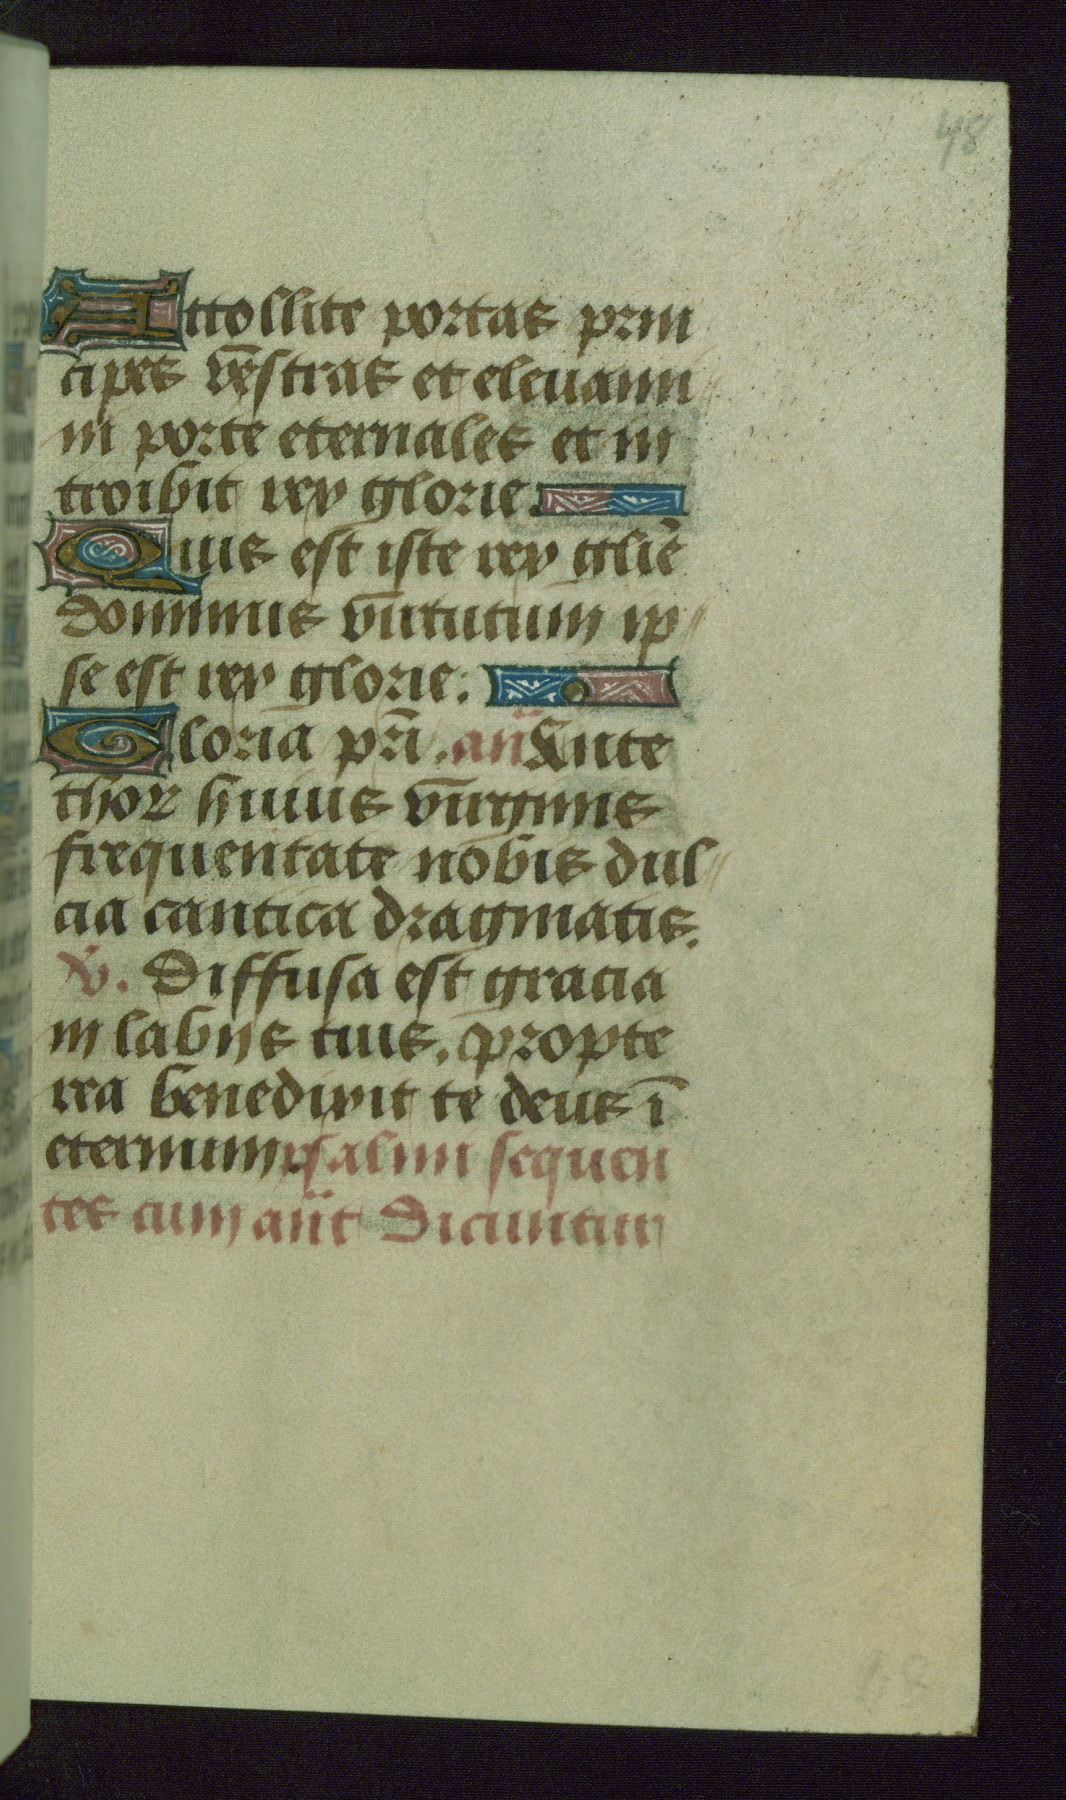 48
Attollite portas prin
cipes vestras et eleuami
ni porte eternales et in
troibit rex glorie.
Quis est iste rex glīe
dominus virtutum ip
se est rex glorie.
Gloria pri. an Ante
thor huius virginis
frequentate nobis dul
cia cantica dragmatis.
V. Diffusa est gracia
in labijs tuis. propte
rea benedixit te deus ī
eternum. psalmi sequen
tes cum ant Dicuntur